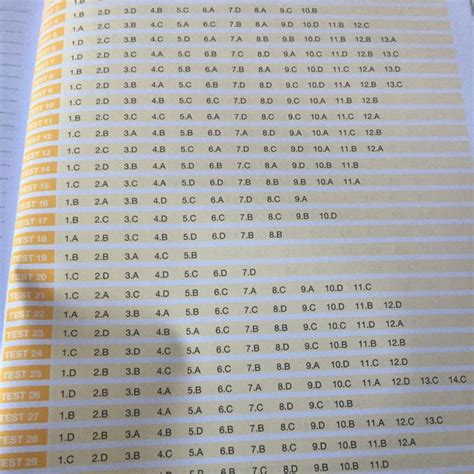 1.B
1.B 2.D 3.D 4.B 5.C 6.A 7.D 8.A 9.C 10.B
1.A 2.C 3.B 4.C 5.A 6.B 7.A 8.A 9.D 10.D 11.B 12.C
1.C 2.D 3.B 4.C 5.D 6.A 7.C 8.D 9.B 10.A 11.B 12.B 13.A
1.D 2.B 3.C 4.A 5.C 6.B 7.C 8.D 9.A 10.D 11.D 12.B 13.C
1.B 2.D 3.C 4.C 5.B 6.A 7.B 8.A 9.C 10.D 11.C 12.A 13.D
TEST 9 1.C 2.D 3.B 4.A 5.C 6.B 7.D 8.C 9.D 10.D 11.A 12.B 13.C
TEST 10 1.C 2.D 3.B 4.B 5.C 6.C 7.D 8.D 9.C 10.A 11.B 12.A
TEST 11 1.B 2.C 3.C 4.C 5.A 6.A 7.D 8.C 9.A 10.A 11.C 12.A
TEST 12 1.C 2.B 3.A 4.B 5.B 6.D 7.A 8.D 9.A 10.A 11.C 12.B
TEST 13 1.C 2.C 3.D 4.B 5.C 6.A 7.D 8.C 9.D 10.D 11.C 12.A
TEST 14 1.C 2.D 3.B 4.A 5.D 6.B 7.C 8.A 9.D 10.B 11.B
TEST 15 1.C 2.A 3.C 4.A 5.D 6.D 7.B 8.B 9.B 10.A 11.A
TEST 16 1.B 2.A 3.B 4.D 5.C 6.A 7.D 8.C 9.A
TEST 17 1.B 2.C 3.C 4.D 5.C 6.C 7.B 8.C 9.B 10.D
TEST 18 1.A 2.B 3.C 4.B 5.D 6.D 7.B 8.B
TEST 19 1.B 2.B 3.A 4.C 5.B
TEST 20 1.C 2.D 3.A 4.D 5.C 6.D 7.D
TEST 21 1.C 2.A 3.C 4.D 5.B 6.C 7.A 8.C 9.C 10.D 11.C
TEST 22 1.A 2.A 3.B 4.D 5.B 6.C 7.A 8.D 9.A 10.B 11.B 12.D
TEST 23 1.C 2.D 3.A 4.B 5.A 6.C 7.B 8.B 9.C 10.D 11.C 12.A
TEST 24 1.C 2.B 3.D 4.C 5.A 6.C 7.B 8.D 9.B 10.D 11.B 12.A
TEST 25 1.D 2.B 3.C 4.B 5.A 6.C 7.B 8.A 9.D 10.D 11.C 12.C
TEST 26 1.D 2.B 3.A 4.A 5.B 6.C 7.A 8.D 9.D 10.C 11.A 12.D 13.C 14.C
TEST 27 1.B 2.B 3.B 4.A 5.A 6.C 7.D 8.D 9.C 10.B
TEST 28 1.D 2.D 3.B 4.A 5.A 6.B 7.B 8.C 9.A 10.B 11.A 12.C 13.C
TEST 29 1.C 2.D 3.A 4.C 5.A 6.B 7.B 8.D 9.D 10.B 11.D
6.B 7.C 8.A 9.D 10.B